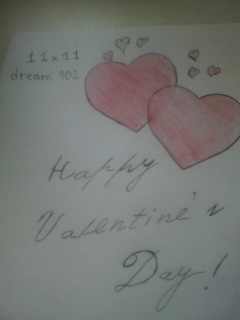 11x11
dream 102
Happy
Valentine's
Day!